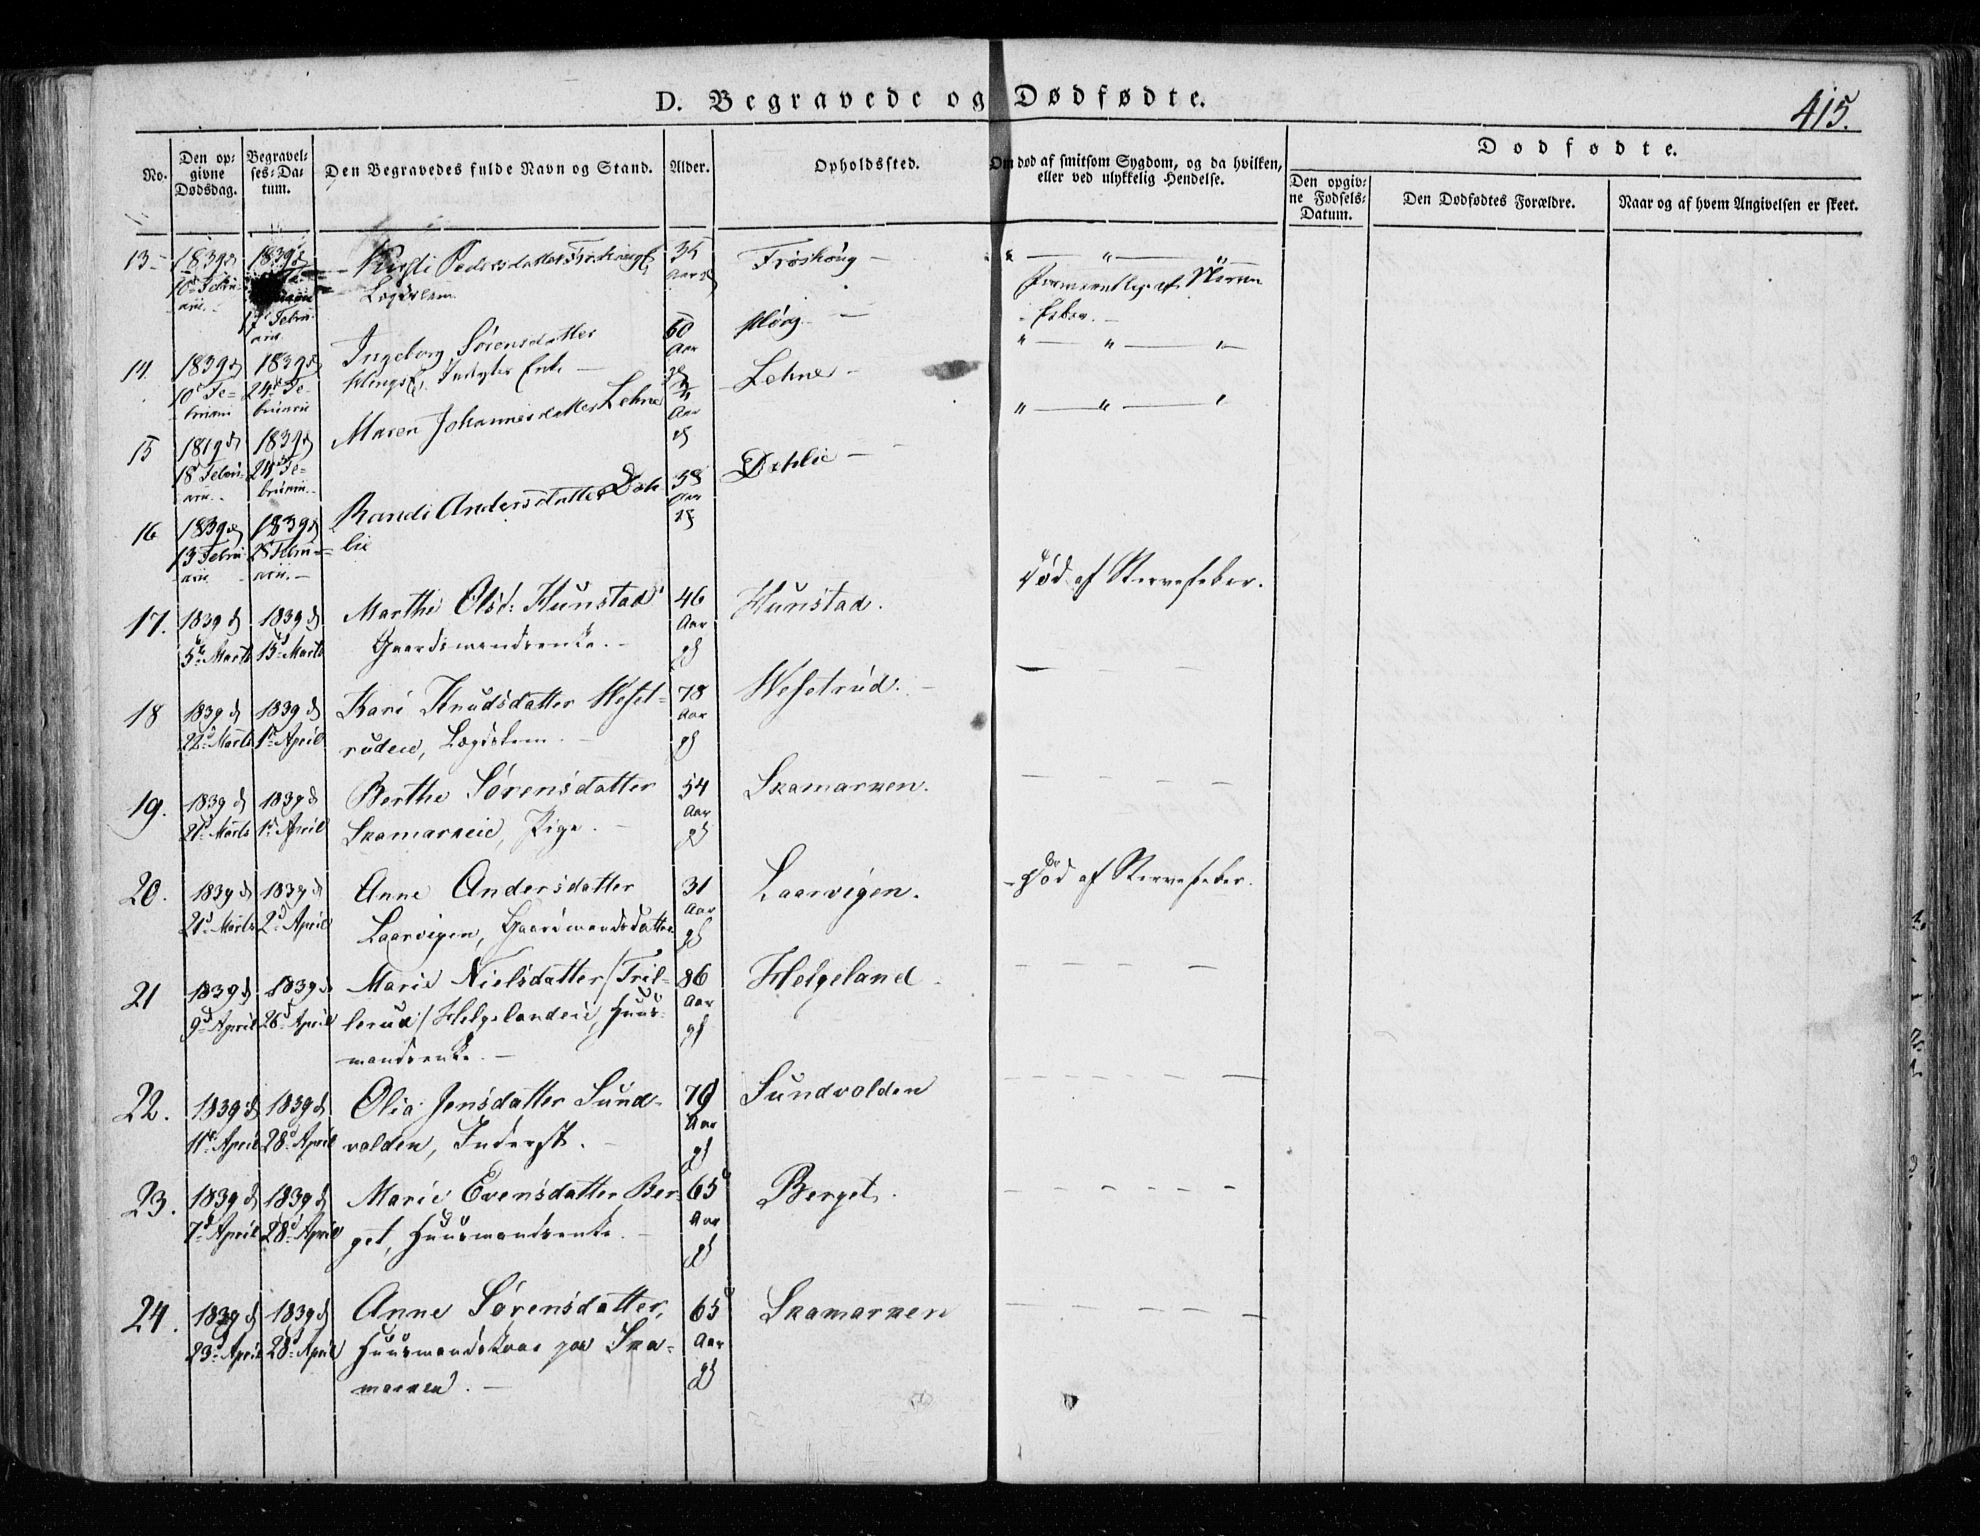 D. Begravede og Dødfødte.
415.
No.
Den op-
givne
Dødsdag.
Begravel-
ses-Da-
tum.
Den Begravedes fulde Navn og Stand.
Alder.
Opholdssted.
Om død af smitsom Sygdom, og da hvilken,
eller ved ulykkelig Hendelse.
Dødfødte.
Den opgiv-
ne Fødsels-
Datum.
Den Dødfødtes Forældre.
Naar og af hvem Angivelsen er skeet.
13
1839 d
10 Febru-
arii
1839 d
17 Febru-
arii
Pedersdatter
Lægdslem
35
Aar
14
1839 d
10 Fe-
bruarii
1839 d
24 Fe-
bruarii
Ingeborg Sørensdatter
Enke
60
Aar
Nerve
feber.
15
1819 d
18 Febru-
arii
1839 d
24 Fe-
bruarii
Maren Johannesdatter Lehne
Aar
Lehne
16
1839 d
13 Febru-
arii
1839 d
28 Febru-
arii
Randi Andersdatter Deh-
lie
38
Aar
Dehlie
17.
1839 d
5te Marts
1839 d
15d Marts
Marthe Olsd: Hunstad
Gaardmandsenke.
46
Aar
gl
Hunstad.
Død af Nervefeber.
18
1839 d
22d Marts
1839 d
1d April
Kari Knudsdatter Weset-
rudeie, Lægdslem.
78
Aar
gl
Wesetrud.
19.
1839 d
21d Marts
1839 d
1d April
Berthe Sørensdatter
Skamarkeie, Pige.
54
Aar
gl
Skamarken.
20.
1839 d
21d Marts
1839 d
2d April
Anne Andersdatter
Laarvigen, Gaardmandsdatter
31
Aar
gl
Laarvigen.
Død af Nervefeber.
21
1839 d
9d April
1839 d
28d April
Marie Nielsdatter/Tril-
lerud/Helgelandeie, Huus-
mandsenke.
86
Aar
gl
Helgeland
22.
1839 d
11te April
1839 d
28d April
Olia Jensdatter Sund-
volden, Inderst.
79
Aar
gl
Sundvolden
23.
1839 d
7d April
1839 d
28d April
Marie Evensdatter Ber-
get, Huusmandsenke.
65
Aar
gl
Berget.
24.
1839 d
23d April
1839 d
28d April
Anne Sørensdatter,
Huusmandskone paa Ska-
marken.
65
Aar
gl
Skamarken